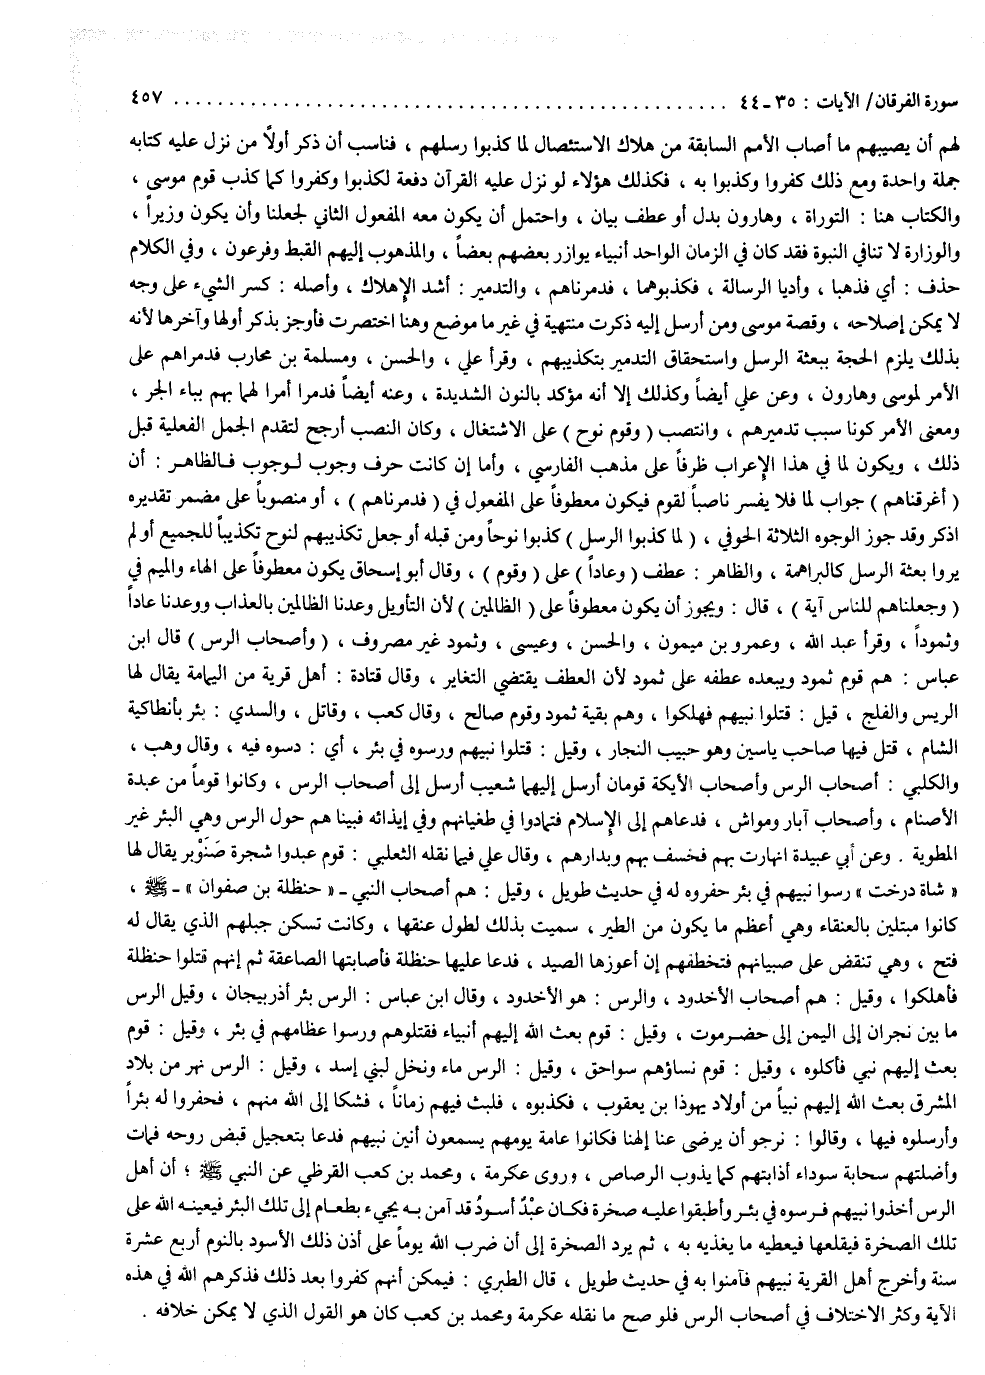 سورة الفرقان/ الآيات : ٣٥ـ٤٤ ................................................ ٤٥٧
لهم أن يصيبهم ما أصاب الأمم السابقة من هلاك الاستئصال لما كذبوا رسلهم ، فناسب أن ذكر أولاً من نزل عليه كتابه
جملة واحدة ومع ذلك كفروا وكذبوا به ، فكذلك هؤلاء لو نزل عليه القرآن دفعة لكذبوا وكفروا كما كذب قوم موسى ،
والكتاب هنا : التوراة ، وهارون بدل أو عطف بيان ، واحتمل أن يكون معه المفعول الثاني لجعلنا وأن يكون وزيراً ،
والوزارة لا تنافي النبوة فقد كان في الزمان الواحد أنبياء يوازر بعضهم بعضاً ، والمذهوب إليهم القبط وفرعون ، وفي الكلام
حذف : أي فذهبا ، وأديا الرسالة ، فكذبوهما ، فدمرناهم ، والتدمير : أشد الإهلاك ، وأصله : كسر الشيء على وجه
لا يمكن إصلاحه ، وقصة موسى ومن أرسل إليه ذكرت منتهية في غير ما موضع وهنا اختصرت فأوجز بذكر أولها وآخرها لأنه
بذلك يلزم الحجة ببعثة الرسل واستحقاق التدمير بتكذيبهم ، وقرأ علي ، والحسن ، ومسلمة بن محارب فدمراهم على
الأمر لموسى وهارون ، وعن علي أيضاً وكذلك إلا أنه مؤكد بالنون الشديدة ، وعنه أيضاً فدمرا أمرا لهما بهم بباء الجر ،
ومعنى الأمر كونا سبب تدميرهم ، وانتصب ( وقوم نوح ) على الاشتغال ، وكان النصب أرجح لتقدم الجمل الفعلية قبل
ذلك ، ويكون لما في هذا الإعراب ظرفاً على مذهب الفارسي ، وأما إن كانت حرف وجوب لوجوب فالظاهر : أن
( أغرقناهم ) جواب لما فلا يفسر ناصباً لقوم فيكون معطوفاً على المفعول في ( فدمرناهم ) ، أو منصوباً على مضمر تقديره
اذكر وقد جوز الوجوه الثلاثة الحوفي ، ( لما كذبوا الرسل ) كذبوا نوحاً ومن قبله أو جعل تكذيبهم لنوح تكذيباً للجميع أو لم
يروا بعثة الرسل كالبراهمة ، والظاهر : عطف ( وعاداً ) على ( وقوم ) ، وقال أبو إسحاق يكون معطوفاً على الهاء والميم في
( وجعلناهم للناس آية ) ، قال : ويجوز أن يكون معطوفاً على ( الظالمين ) لأن التأويل وعدنا الظالمين بالعذاب ووعدنا عاداً
وثموداً ، وقرأ عبد الله ، وعمرو بن ميمون ، والحسن ، وعيسى ، وثمود غير مصروف ، ( وأصحاب الرس ) قال ابن
عباس : هم قوم ثمود ويبعده عطفه على ثمود لأن العطف يقتضي التغاير ، وقال قتادة : أهل قرية من اليمامة يقال لها
الريس والفلج ، قيل : قتلوا نبيهم فهلكوا ، وهم بقية ثمود وقوم صالح ، وقال كعب ، وقاتل ، والسدي : بئر بأنطاكية
الشام ، قتل فيها صاحب ياسين وهو حبيب النجار ، وقيل : قتلوا نبيهم ورسوه في بئر ، أي : دسوه فيه ، وقال وهب ،
والكلبي : أصحاب الرس وأصحاب الأيكة قومان أرسل إليهما شعيب أرسل إلى أصحاب الرس ، وكانوا قوماً من عبدة
الأصنام ، وأصحاب آبار ومواش ، فدعاهم إلى الإسلام فتمادوا في طغيانهم وفي إيذائه فبينا هم حول الرس وهي البئر غير
المطوية . وعن أبي عبيدة انهارت بهم فخسف بهم وبدارهم ، وقال علي فيما نقله الثعلبي : قوم عبدوا شجرة صَنَوْبر يقال لها
« شاة درخت » رسوا نبيهم في بئر حفروه له في حديث طويل ، وقيل : هم أصحاب النبي ـ « حنظلة بن صفوان » ـ ﷺ ،
كانوا مبتلين بالعنقاء وهي أعظم ما يكون من الطير ، سميت بذلك لطول عنقها ، وكانت تسكن جبلهم الذي يقال له
فتح ، وهي تنقض على صبيانهم فتخطفهم إن أعوزها الصيد ، فدعا عليها حنظلة فأصابتها الصاعقة ثم إنهم قتلوا حنظلة
فأهلكوا ، وقيل : هم أصحاب الأخدود ، والرس : هو الأخدود ، وقال ابن عباس : الرس بئر أذربيجان ، وقيل الرس
ما بين نجران إلى اليمن إلى حضرموت ، وقيل : قوم بعث الله إليهم أنبياء فقتلوهم ورسوا عظامهم في بئر ، وقيل : قوم
بعث إليهم نبي فأكلوه ، وقيل : قوم نساؤهم سواحق ، وقيل : الرس ماء ونخل لبني إسد ، وقيل : الرس نهر من بلاد
المشرق بعث الله إليهم نبياً من أولاد يهوذا بن يعقوب ، فكذبوه ، فلبث فيهم زماناً ، فشكا إلى الله منهم ، فحفروا له بئراً
وأرسلوه فيها ، وقالوا : نرجو أن يرضى عنا إلهنا فكانوا عامة يومهم يسمعون أنين نبيهم فدعا بتعجيل قبض روحه فمات
وأضلتهم سحابة سوداء أذابتهم كما يذوب الرصاص ، وروى عكرمة ، ومحمد بن كعب القرظي عن النبي ﷺ ؛ أن أهل
الرس أخذوا نبيهم فرسوه في بئر وأطبقوا عليه صخرة فكان عبْدٌ أسودُ قد آمن به يجيء بطعام إلى تلك البئر فيعينه الله على
تلك الصخرة فيقلعها فيعطيه ما يغذيه به ، ثم يرد الصخرة إلى أن ضرب الله يوماً على أذن ذلك الأسود بالنوم أربع عشرة
سنة وأخرج أهل القرية نبيهم فآمنوا به في حديث طويل ، قال الطبري : فيمكن أنهم كفروا بعد ذلك فذكرهم الله في هذه
الآية وكثر الاختلاف في أصحاب الرس فلو صح ما نقله عكرمة ومحمد بن كعب كان هو القول الذي لا يمكن خلافه .